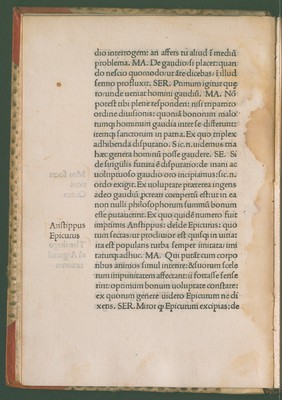 dio interrogem: an affers tu aliud ī mediū
problema. MA. De gaudio si placet: quan
do nescio quomodo, ut āte dicebas: ī illud
sermo profluxit. SER. Primum igitur quę
ro unde ueniat homini gaudiū. MA. Nō
potest tibi plene responderi: nisi tripartito
ordine diuisionis: quoniā bonorum malo
rumq; hominum gaudia inter se differunt:
itemq; sanctorum in patria. Ex quo triplex
adhibenda disputatio. Sic.n. uidemus tria
hæc genera hominū posse gaudere. SE. Si
de singulis futura ē disputatio: de mani ac
uoluptuoso gaudio eo incipiamus: sic.n.
ordo exigit. Ex uoluptate præterea ingens
adeo gaudiū percipi compertū est: ut in ea
non nulli philosophorum summū bonum
esse putauerint. Ex quo quidē numero fuit
Aristippus
inprimis Aristippus: deīde Epicurus: quo
Epicurus
rum sectas: ut procliuior est quisq; in uitia:
ita est populans turba semper imitata: imi
taturq; adhuc. MA. Qui putāt cum corpo
ribus animos simul interire: & suorum scele
rum impunitatem affectant: ii fortasse sense
rint: optimum bonum uoluptate constare:
ex quorum genere uidero Epicurum ne di
xeris. SER. Miror q Epicurum excipias: de